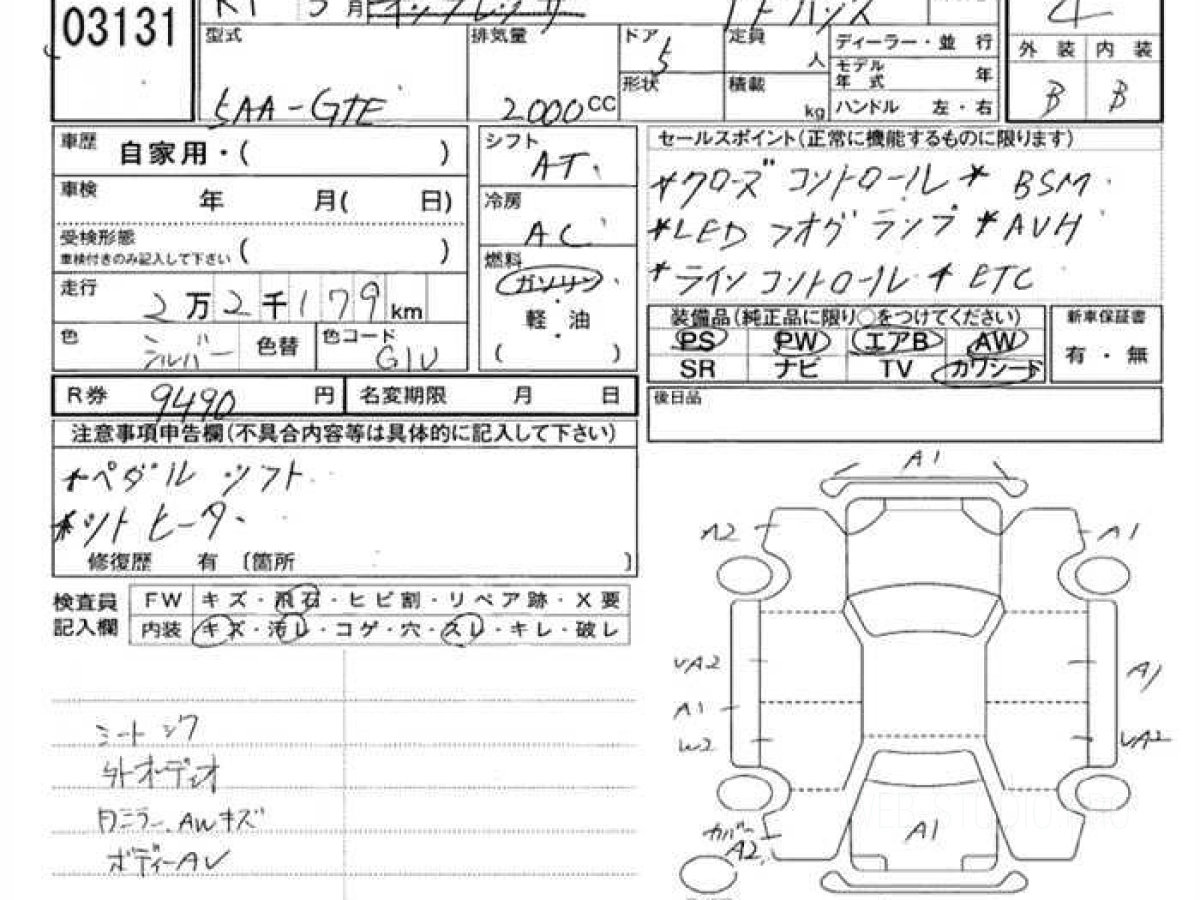 03131
R1 3月 インプレッサ アドバンス 4
型式 5AA-GTE
排気量 2000 CC
ドア 5
形状
定員 人
積載 kg
ディーラー・並行
モデル年式 年
ハンドル 左・右
外装 内装
B B
車歴 自家用・( )
車検 年 月( 日)
受検形態 ( )
車検付きのみ記入して下さい
走行 2万2千179km
色 シルバー 色替 色コード G1U
シフト AT
冷房 AC
燃料 ガソリン・軽油・( )
セールスポイント(正常に機能するものに限ります)
*クローズ コントロール * BSM
*LED フォグ ランプ *AVH
*ライン コントロール * ETC
装備品(純正品に限り○をつけてください)
PS PW エアB AW
SR ナビ TV カワシート
新車保証書
有・無
R券 9490 円 名変期限 月 日
後日品
注意事項申告欄(不具合内容等は具体的に記入して下さい)
*ペダル シフト
修復歴 有 〔箇所 〕
検査員記入欄
FW キズ・飛石・ヒビ割・リペア跡・X要
内装 キズ・汚レ・コゲ・穴・スレ・キレ・破レ
シートシワ
外オーディオ
内ミラー、AWキズ
ボディーAU
A1
A2 A1
UA2 A1
A1
W2 UA2
カバー A2
A1